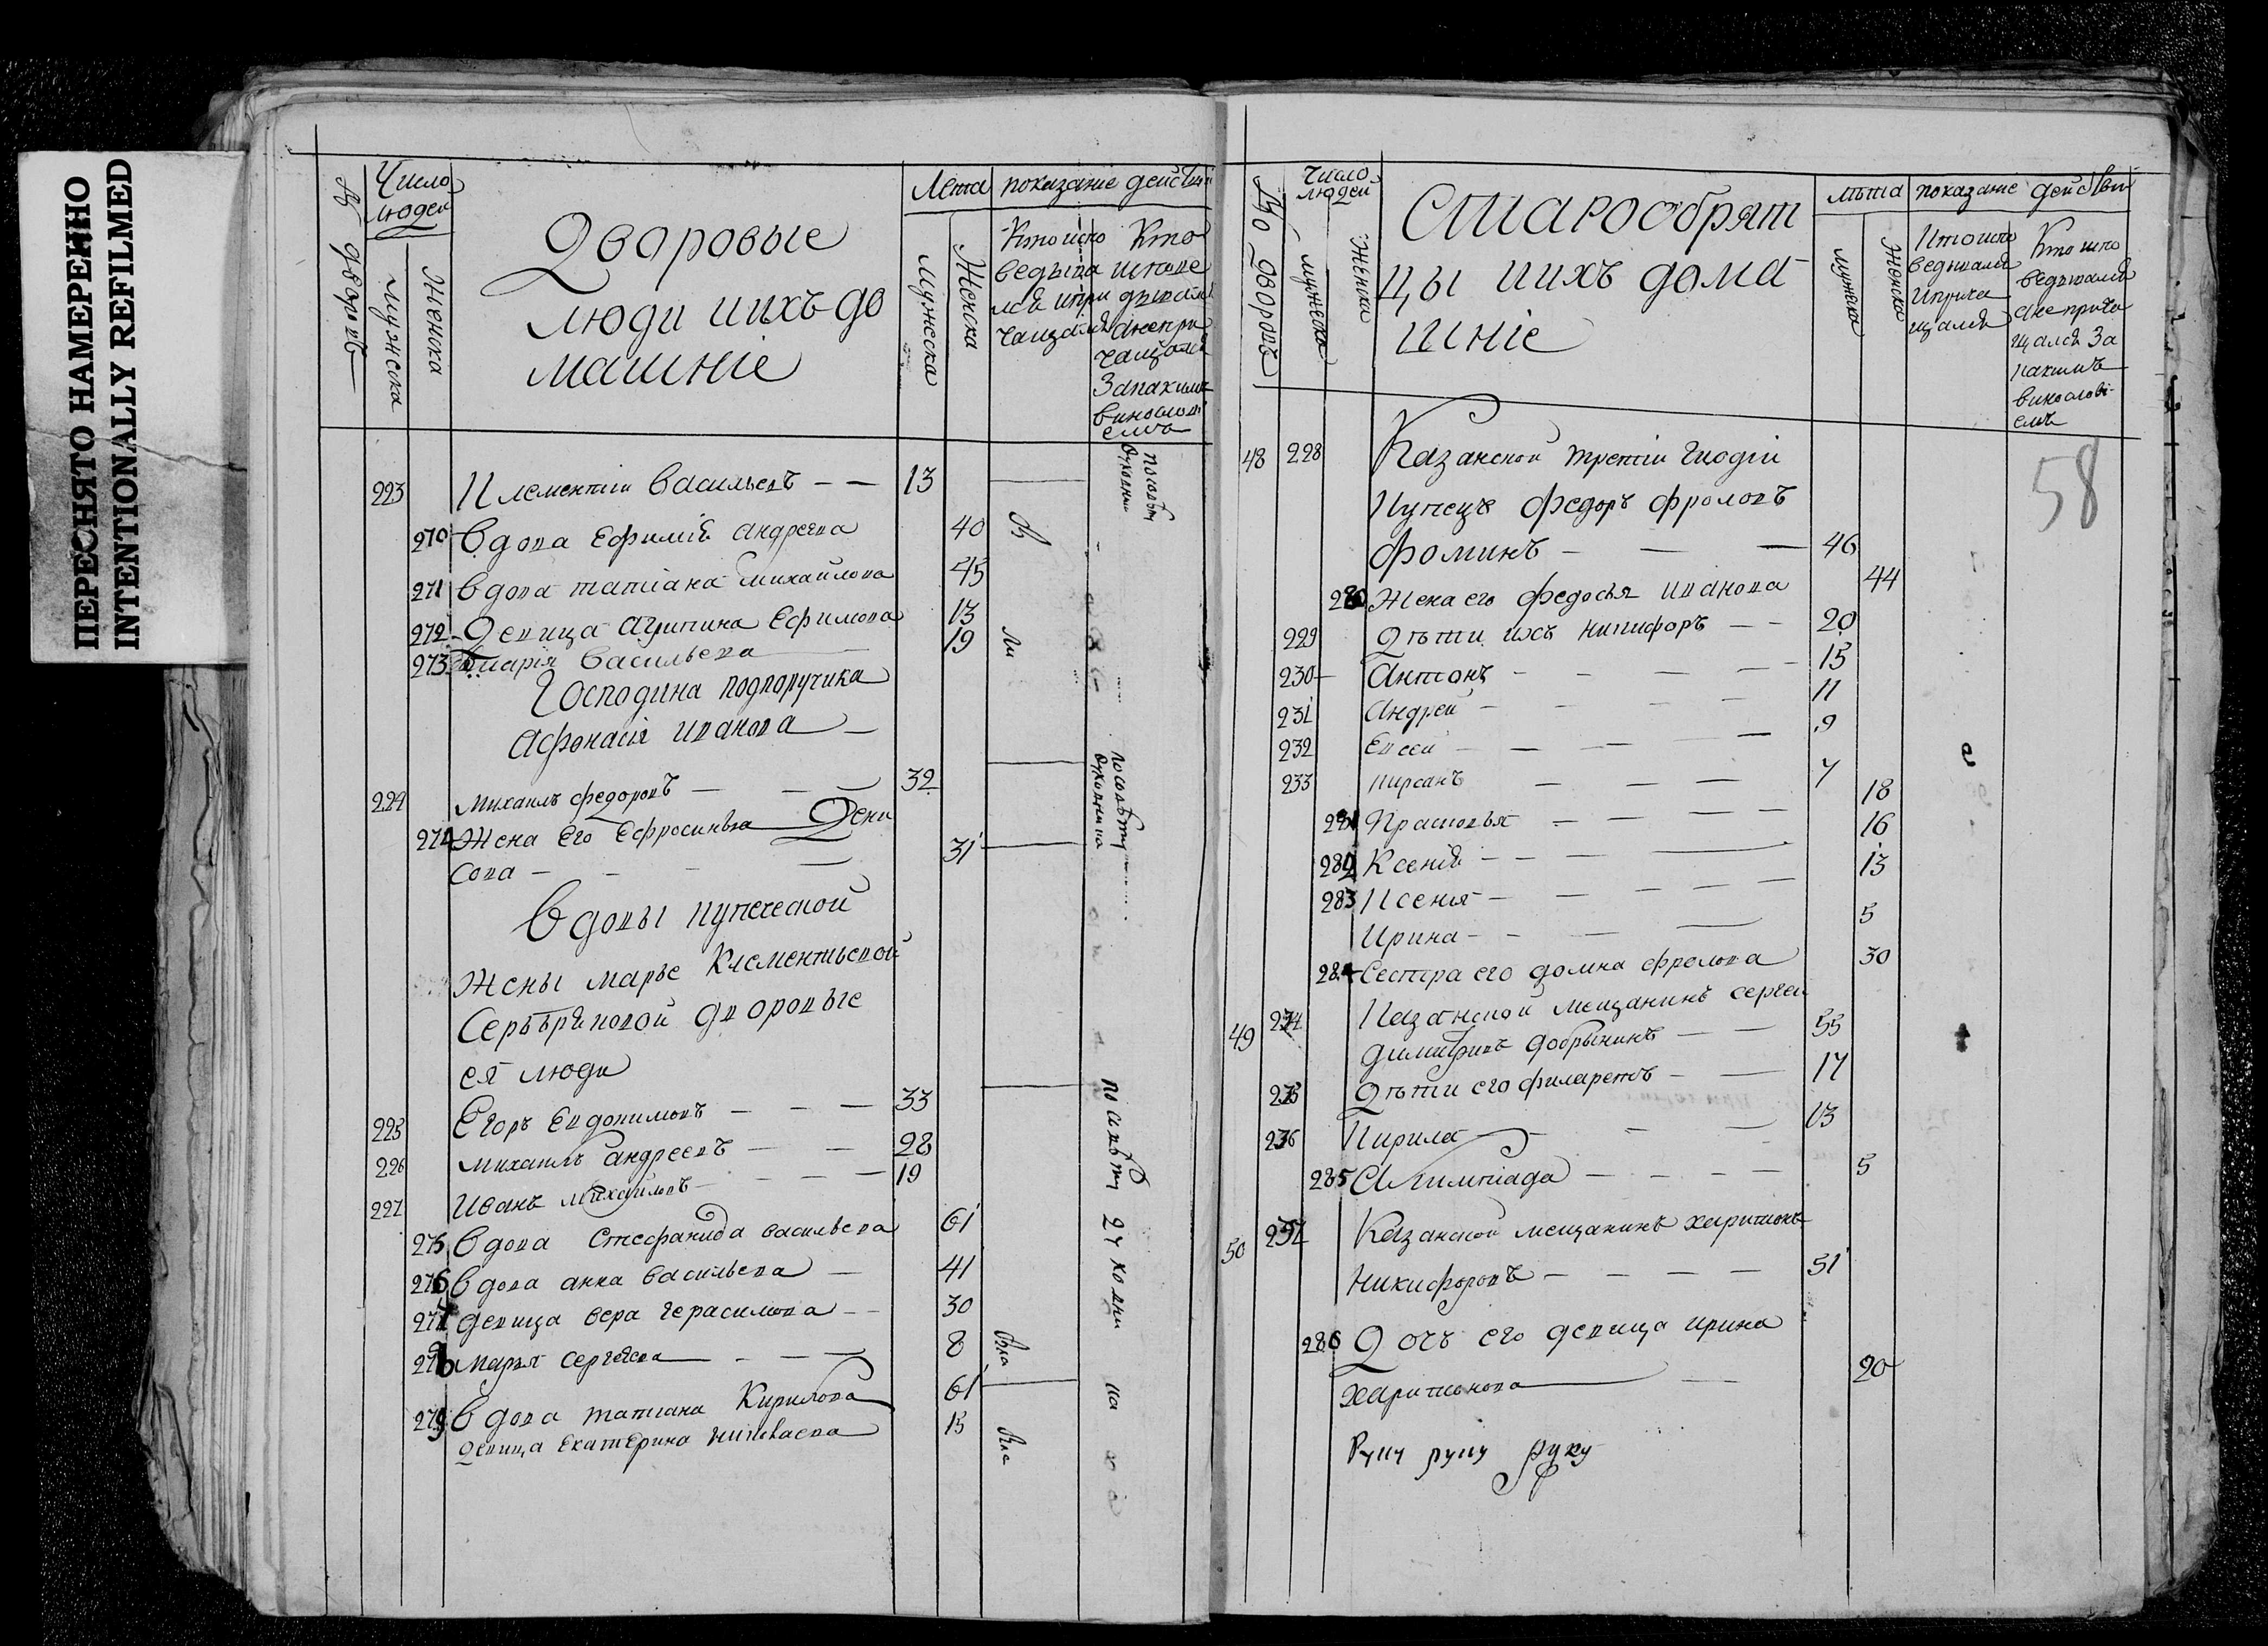 ПЕРЕСНЯТО НАМЕРЕННО
INTENTIONALLY REFILMED
Число
людей
мужеска
Женска
Дворовые
люди иихъ до
машніе
Лета
Мужеска
Женска
показание действи
Кто испо
ведыва
лся ипри
чащался
Кто
испове
дывался
анепри
чащался
Запакимъ
виносло
223 Клементіи Васильевъ 13
270 Вдова Ефимія андреева 40
271 Вдова татиана михаилова 45
272 Девица агрипина Ефимова 13
273 марія Васильева 19
Господина подпоручика
Афонасія иванова
224 михаилъ федоровъ 32
274 Жена Его Ефросинья Дени
сова 31
Вдовы купеческой
Жены марье Клементьевой
Серебряковой дворовые
ея люди
225 Егоръ Евдокимовъ 33
226 михаилъ андреевъ 28
227 Иванъ Михаиловъ 19
275 Вдова Стефанида васильева 61
276 Вдова анна васильева 41
277 девица вера герасимова 30
278 марья сергеева 8
279 Вдова татиана Кирилова 61
девица Екатерина николаева 15
Число
людей
мужеска
Женска
Старообрят
цы иихъ дома
шніе
лѣта
мужеска
Женска
показание действи
Кто испо
ведывался
иприча
щался
Кто испо
ведывался
анеприча
щался За
какимъ
винослові
емъ
58
48 228 Казанской третіи гилдіи
Купецъ федоръ фроловъ
фоминъ 46
280 Жена его федосья иванова 44
229 Дѣти ихъ никифоръ 20
230 Антонъ 15
231 Андреи 11
232 Евсеи 9
233 кирсанъ 7
281 Прасковья 18
282 Ксенія 16
283 Ксенья 13
Ирина 5
284 Сестра его домна фролова 30
49 234 Казанской мещанинъ сергеи
димитривъ добрынинъ 55
235 Дѣти его филаретъ 17
236 Кирила 13
285 Алимпіада 5
50 237 Казанской мещанинъ харитонъ
Никифоровъ 51
286 Дочь его девица ирина
харитонова 20
Руку руку руку